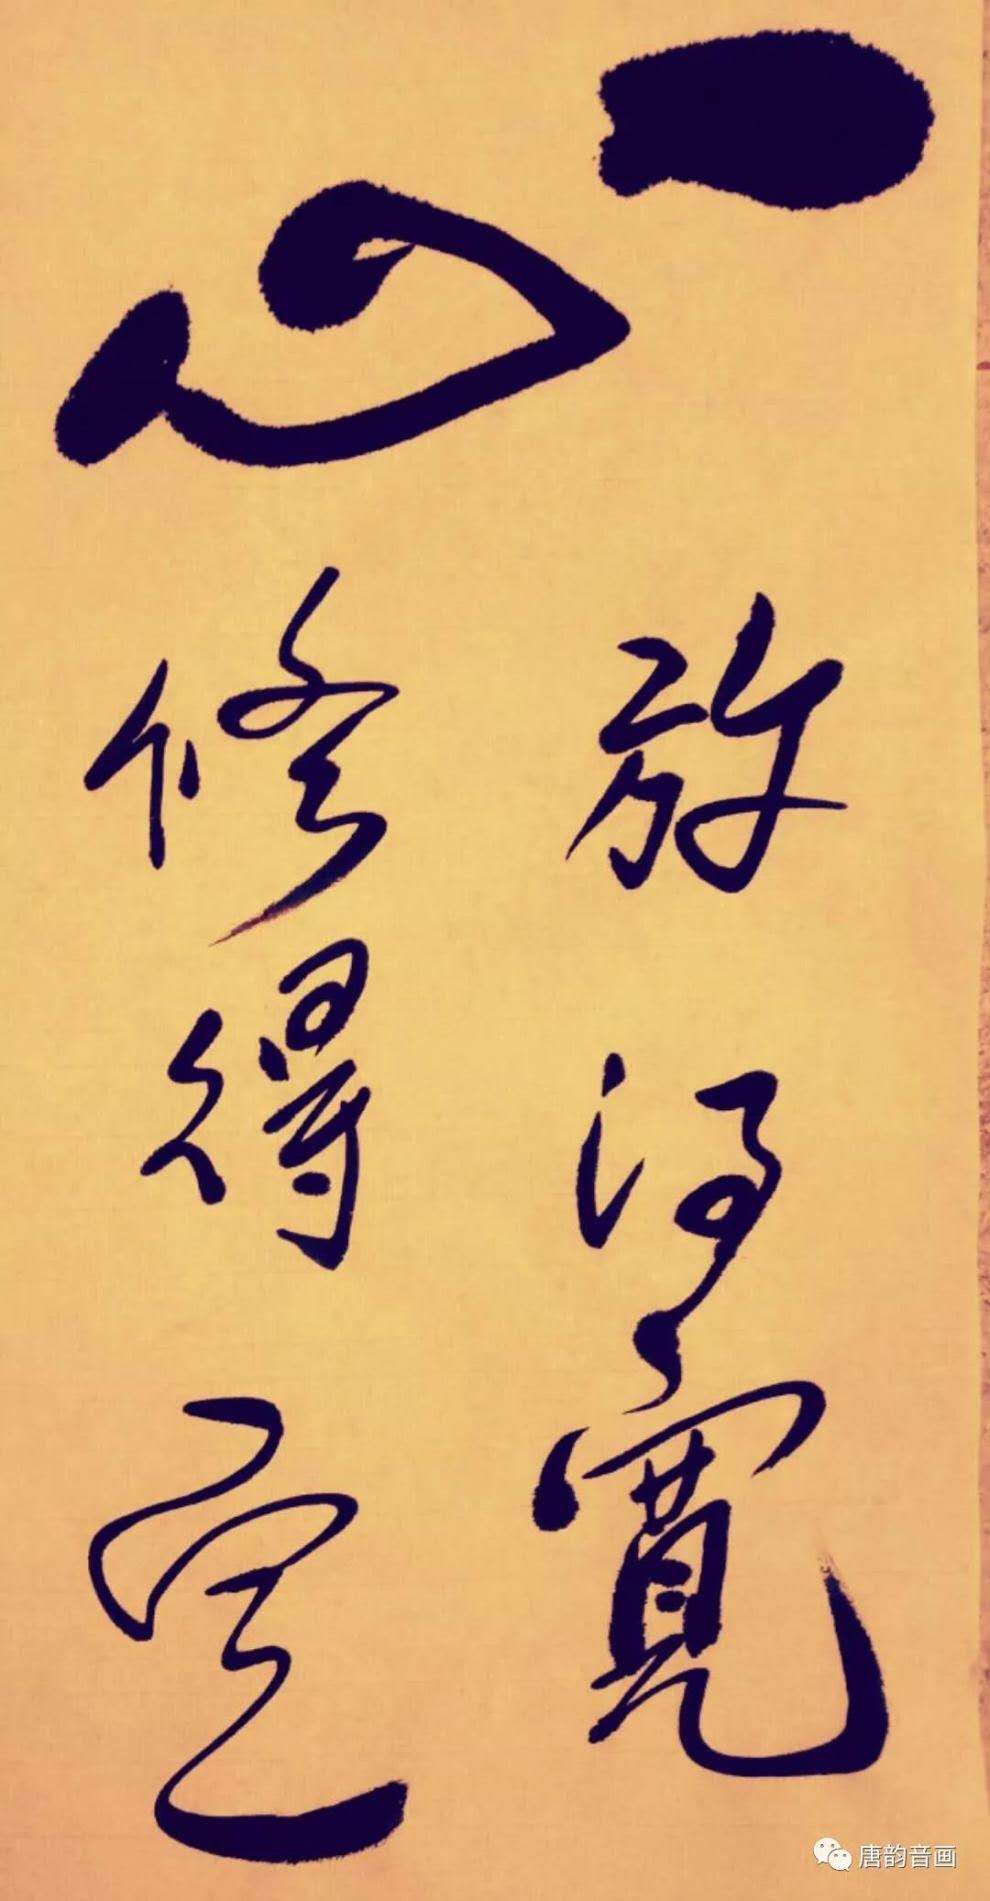 一放得寬
心修得定
唐韵音画